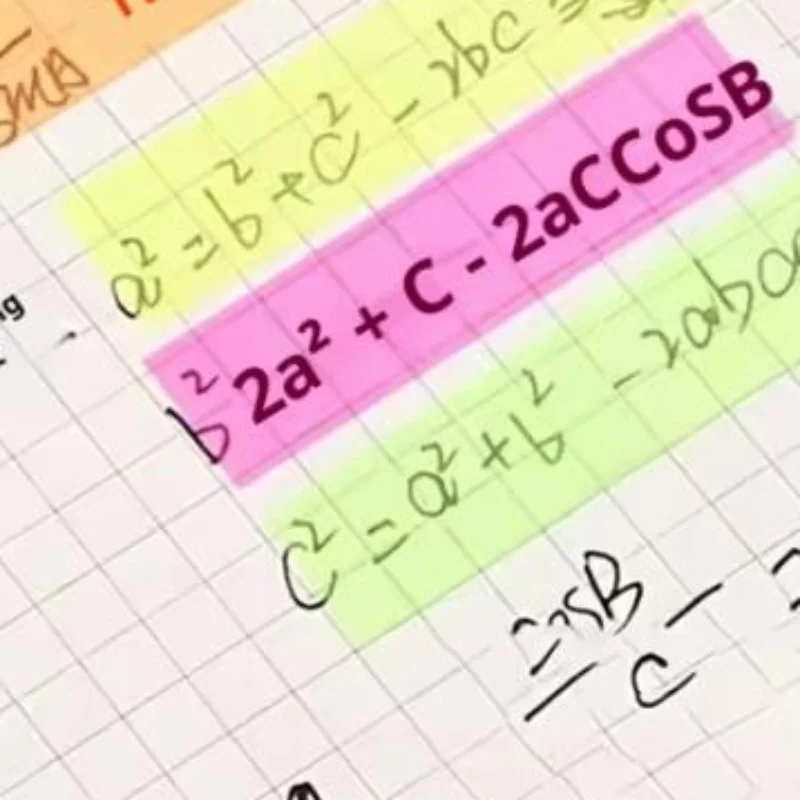 a² = b² + c² - 2bc
b² 2a² + C - 2aCCoSB
c² = a² + b² - 2ab
B
C